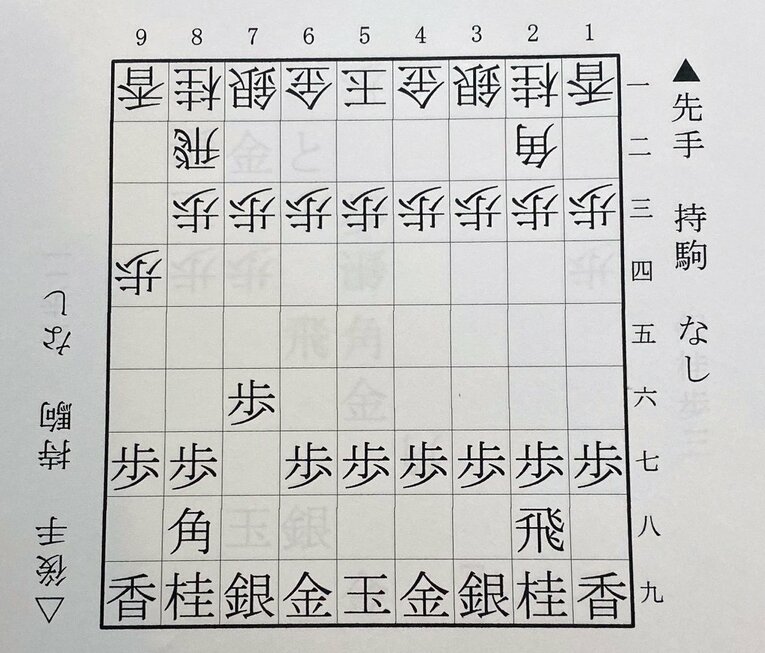 9 8 7 6 5 4 3 2 1
香 桂 銀 金 玉 金 銀 桂 香 一
飛 角 二
歩 歩 歩 歩 歩 歩 歩 歩 三
歩 四
五
歩 六
歩 歩 歩 歩 歩 歩 歩 歩 七
角 飛 八
香 桂 銀 金 玉 金 銀 桂 香 九
▲先手 持駒 なし
△後手 持駒 なし